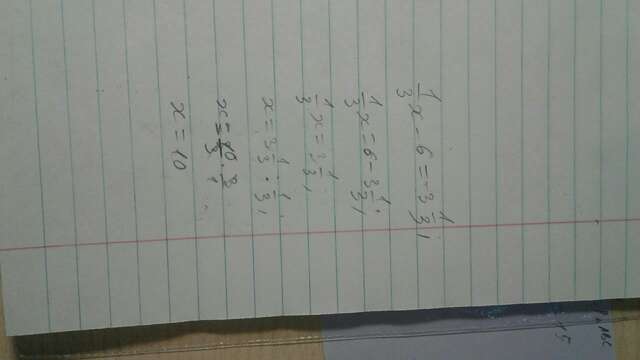 1/3 x - 6 = -3 1/3;
1/3 x = 6 - 3 1/3;
1/3 x = 3 1/3;
x = 3 1/3 : 1/3;
x = 10/3 · 3/1
x = 10